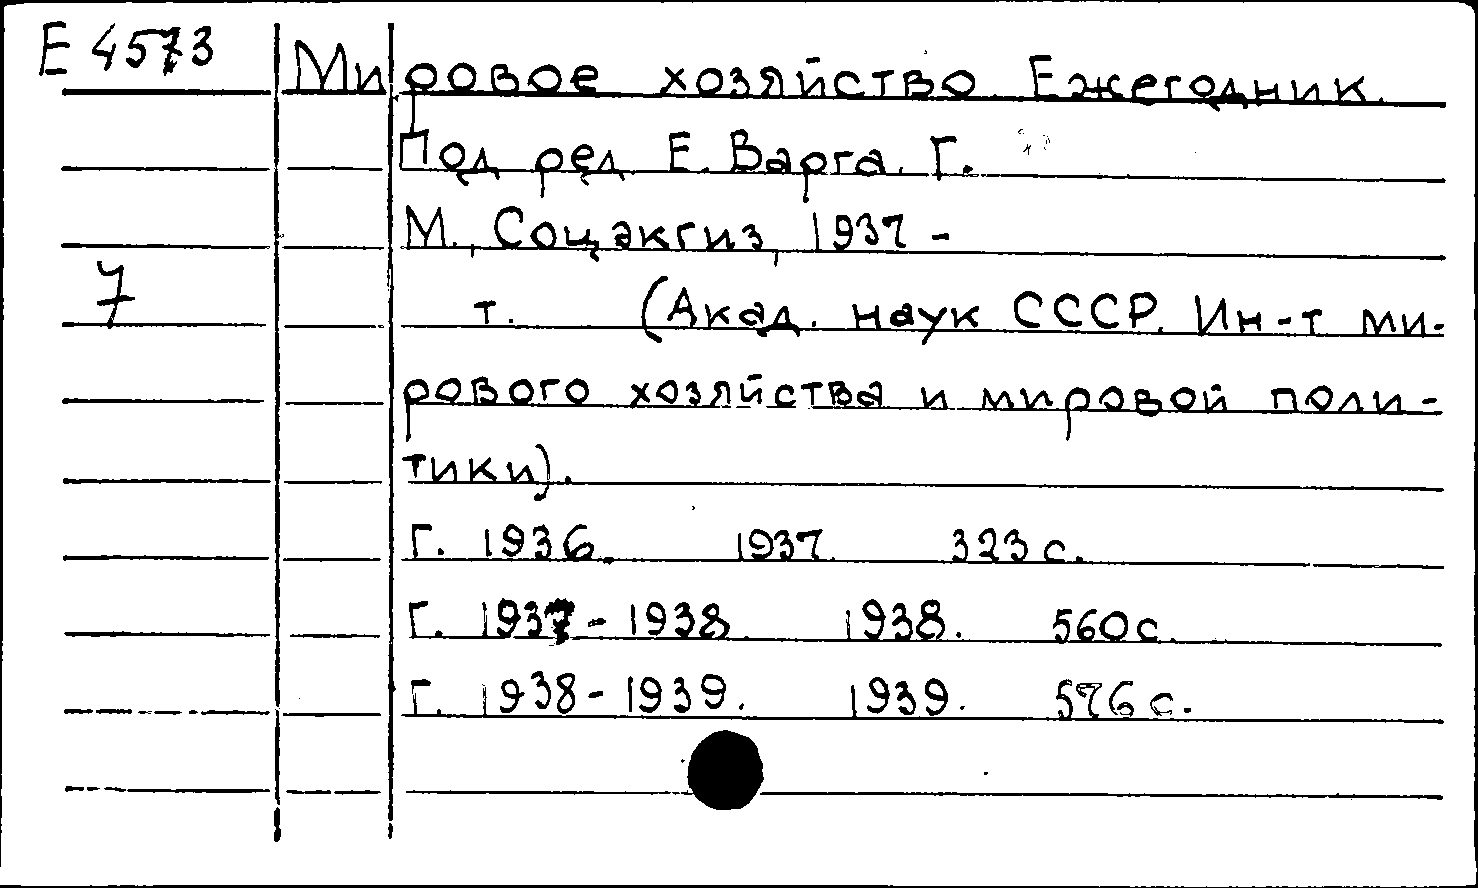 Е 4573 Мировое хозяйство. Ежегодник.
Под ред. Е. Варга. Г.
М., Соцэкгиз, 1937 -
7 т. (Акад. наук СССР. Ин-т ми-
рового хозяйства и мировой поли-
тики).
Г. 1936. 1937. 323 с.
Г. 1937-1938. 1938. 560 с.
Г. 1938-1939. 1939. 576 с.